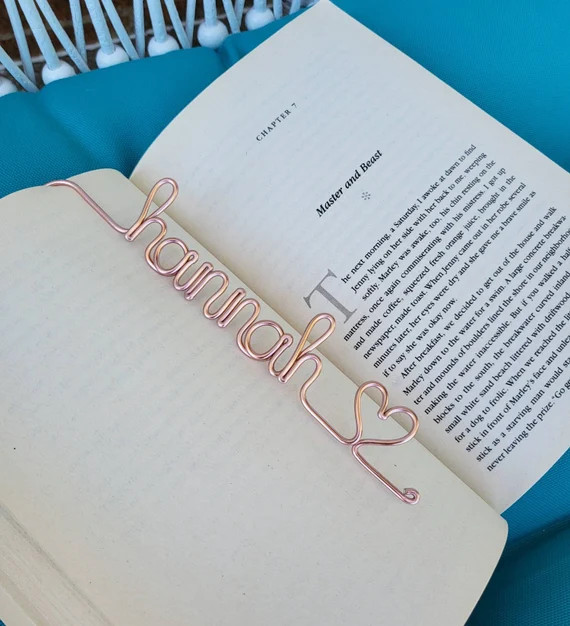 hannah
CHAPTER 7
Master and Beast
The next morning, a Saturday, I awoke at dawn to find
Jenny lying on her side with her back to me, weeping
softly. Marley was awake, too, his chin resting on the
mattress, once again commiserating with his mistress. I got up
and made coffee, squeezed fresh orange juice, brought in the
newspaper, made toast. When Jenny came out in her robe several
minutes later, her eyes were dry and she gave me a brave smile as
if to say she was okay now.
After breakfast, we decided to get out of the house and walk
Marley down to the water for a swim. A large concrete breakwa-
ter and mounds of boulders lined the shore in our
making the water inaccessible. But if you walked a
blocks to the south, the breakwater curved inland
small white sand beach littered with driftwood
for a dog to frolic. When we reached the
stick in front of Marley's face and
stick as a starving man would
never leaving the prize. "Go